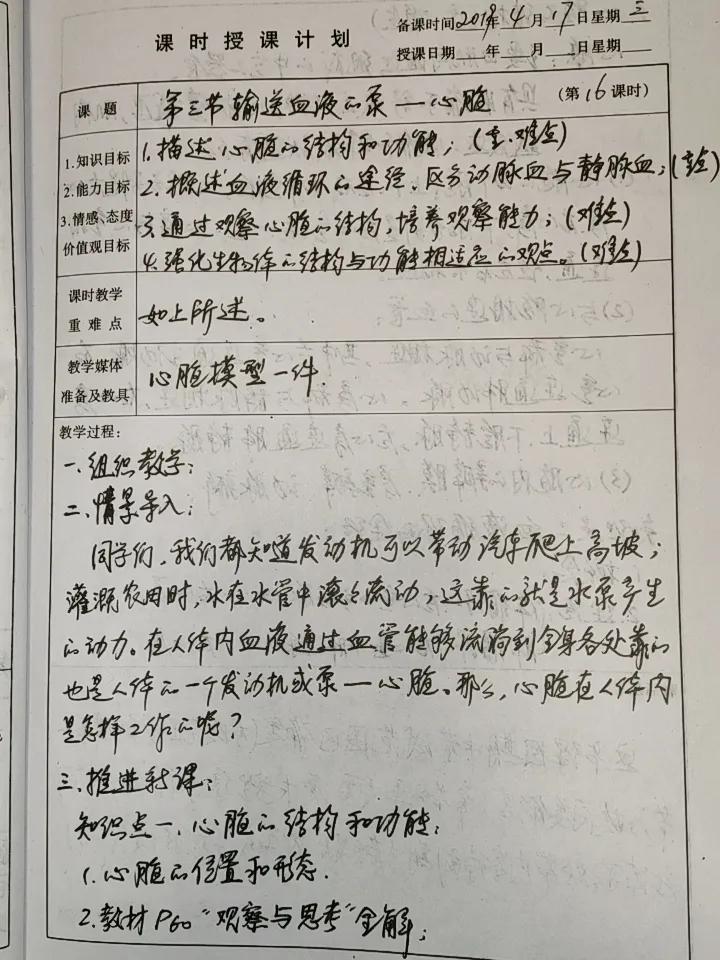 课时授课计划
备课时间2019年4月17日星期三
授课日期 年 月 日星期
课题 第三节输送血液的泵—心脏 (第16课时)
1.知识目标
2.能力目标
3.情感、态度
价值观目标
1.描述心脏的结构和功能;(重.难点)
2.概述血液循环的途径.区分动脉血与静脉血;(重点)
3.通过观察心脏的结构,培养观察能力;(难点)
4.强化生物体的结构与功能相适应的观点。(难点)
课时教学
重难点
如上所述。
教学媒体
准备及教具
心脏模型一件.
教学过程:
一.组织教学;
二.情景导入;
同学们,我们都知道发动机可以带动汽车爬上高坡;
灌溉农田时,水在水管中滚滚流动,这靠的就是水泵产生
的动力。在人体内血液通过血管能够流淌到全身各处靠的
也是人体的一个发动机或泵—心脏。那么,心脏在人体内
是怎样工作的呢?
三.推进新课:
知识点一.心脏的结构和功能:
1.心脏的位置和形态.
2.教材P60“观察与思考”全解;